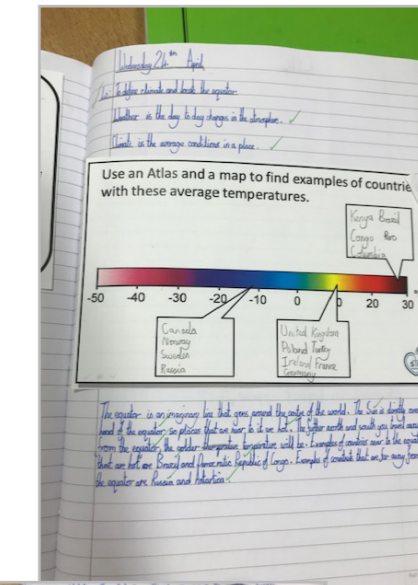 Wednesday 24th April
L.I. To define climate and locate the equator
Weather is the day to day changes in the atmosphere.
Climate is the average conditions in a place.
Use an Atlas and a map to find examples of countrie
with these average temperatures.
Kenya Brazil
Congo
Columbia
-50 -40 -30 -20 -10 0 20 30
Canada
Norway
Sweden
Russia
United Kingdom
Poland Turkey
Ireland France
Germany
The equator is an imaginary line that goes around the centre of the world. The Sun is directly
of the equator so places that are near to it are hot. The further north and south you travel
from the equator, the colder temperature will be. Examples of countries near to the
that are hot are Brazil and Democratic Republic of Congo. Examples of that are far away from
the equator are Russia and